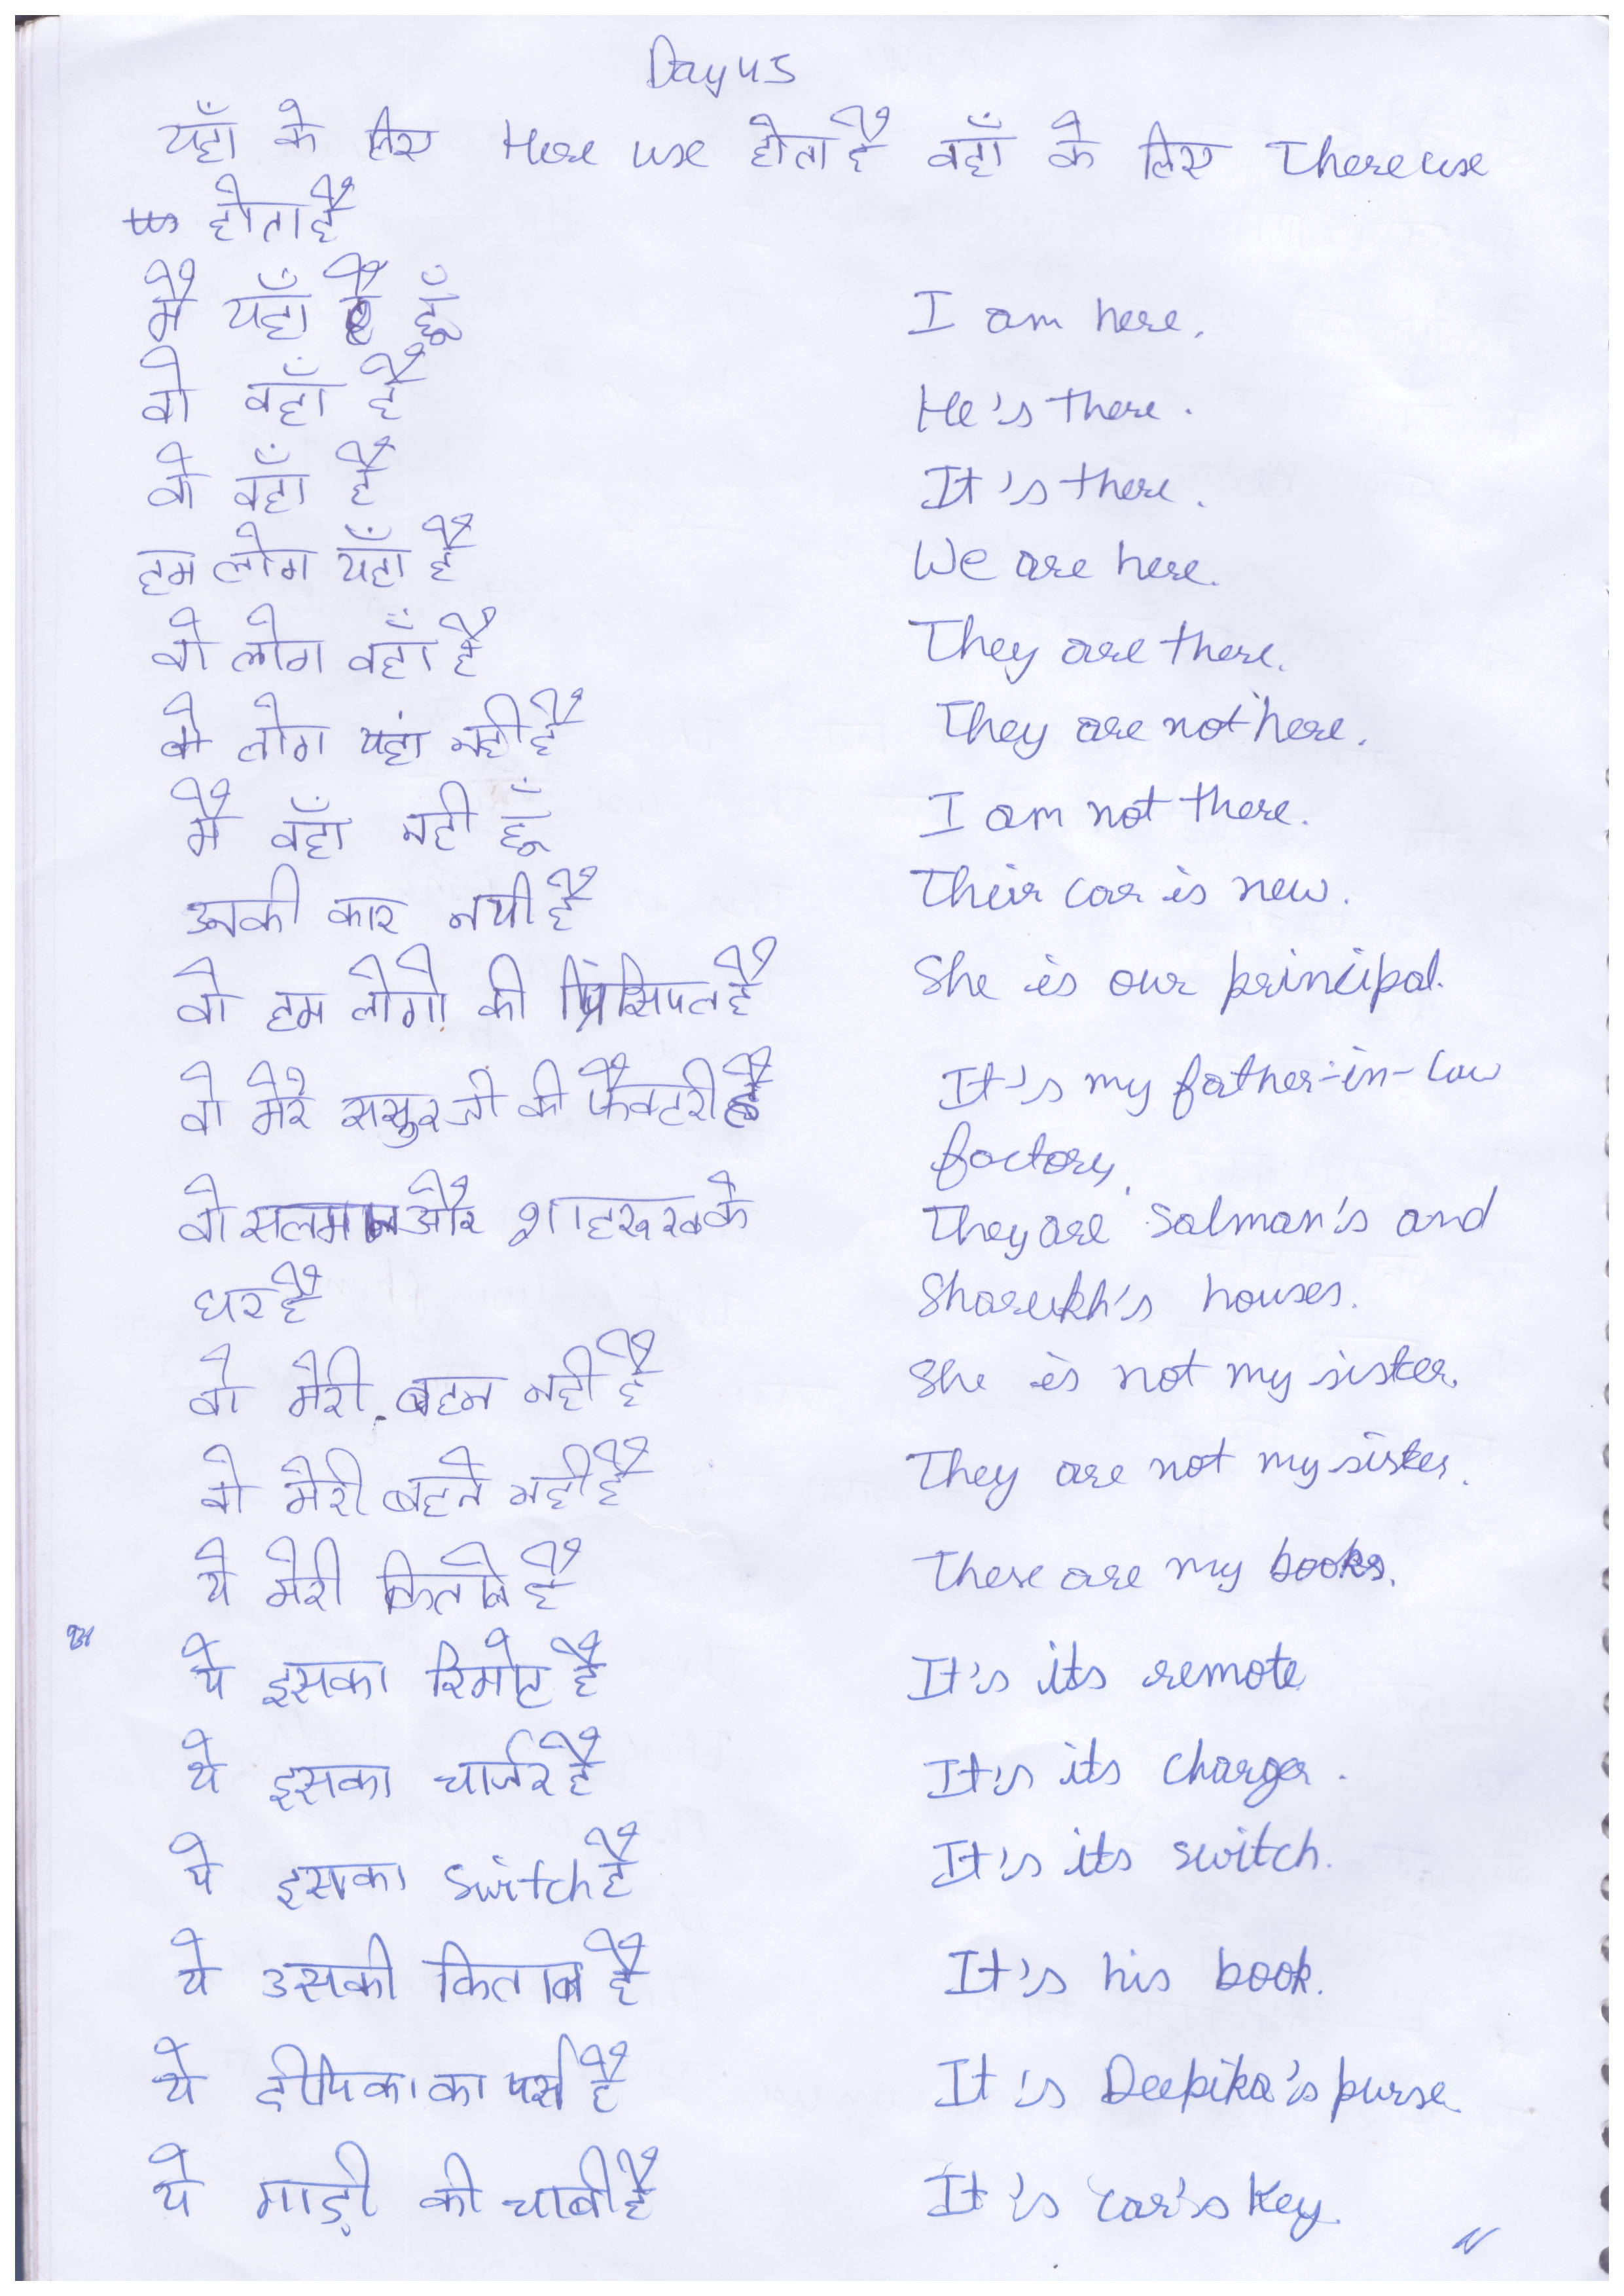 Day 45
यहाँ के लिए Here use होता है वहाँ के लिए There use
होता है
मै यहाँ हूँ I am here.
वो वहाँ है He's there.
वो वहाँ है It's there.
हम लोग यहाँ है We are here.
वो लोग वहाँ है They are there.
वो लोग यहां नही है They are not here.
मै वहाँ नही हूँ I am not there.
उनकी कार नयी है Their car is new.
वो हम लोगो की प्रिंसिपल है She is our principal.
वो मेरे ससुर जी की फैक्टरी है It's my father-in-law
factory.
वो सलमान और शाहरुख के They are Salman's and
घर है Sharukh's houses.
वो मेरी बहन नही है She is not my sister.
वो मेरी बहने नही है They are not my sister.
ये मेरी किताबे है These are my books.
ये इसका रिमोट है It's its remote
ये इसका चार्जर है It's its charger.
ये इसका switch है It's its switch.
ये उसकी किताब है It's his book.
ये दीपिका का पर्स है It's Deepika's purse.
ये गाड़ी की चाबी है It's car's key.